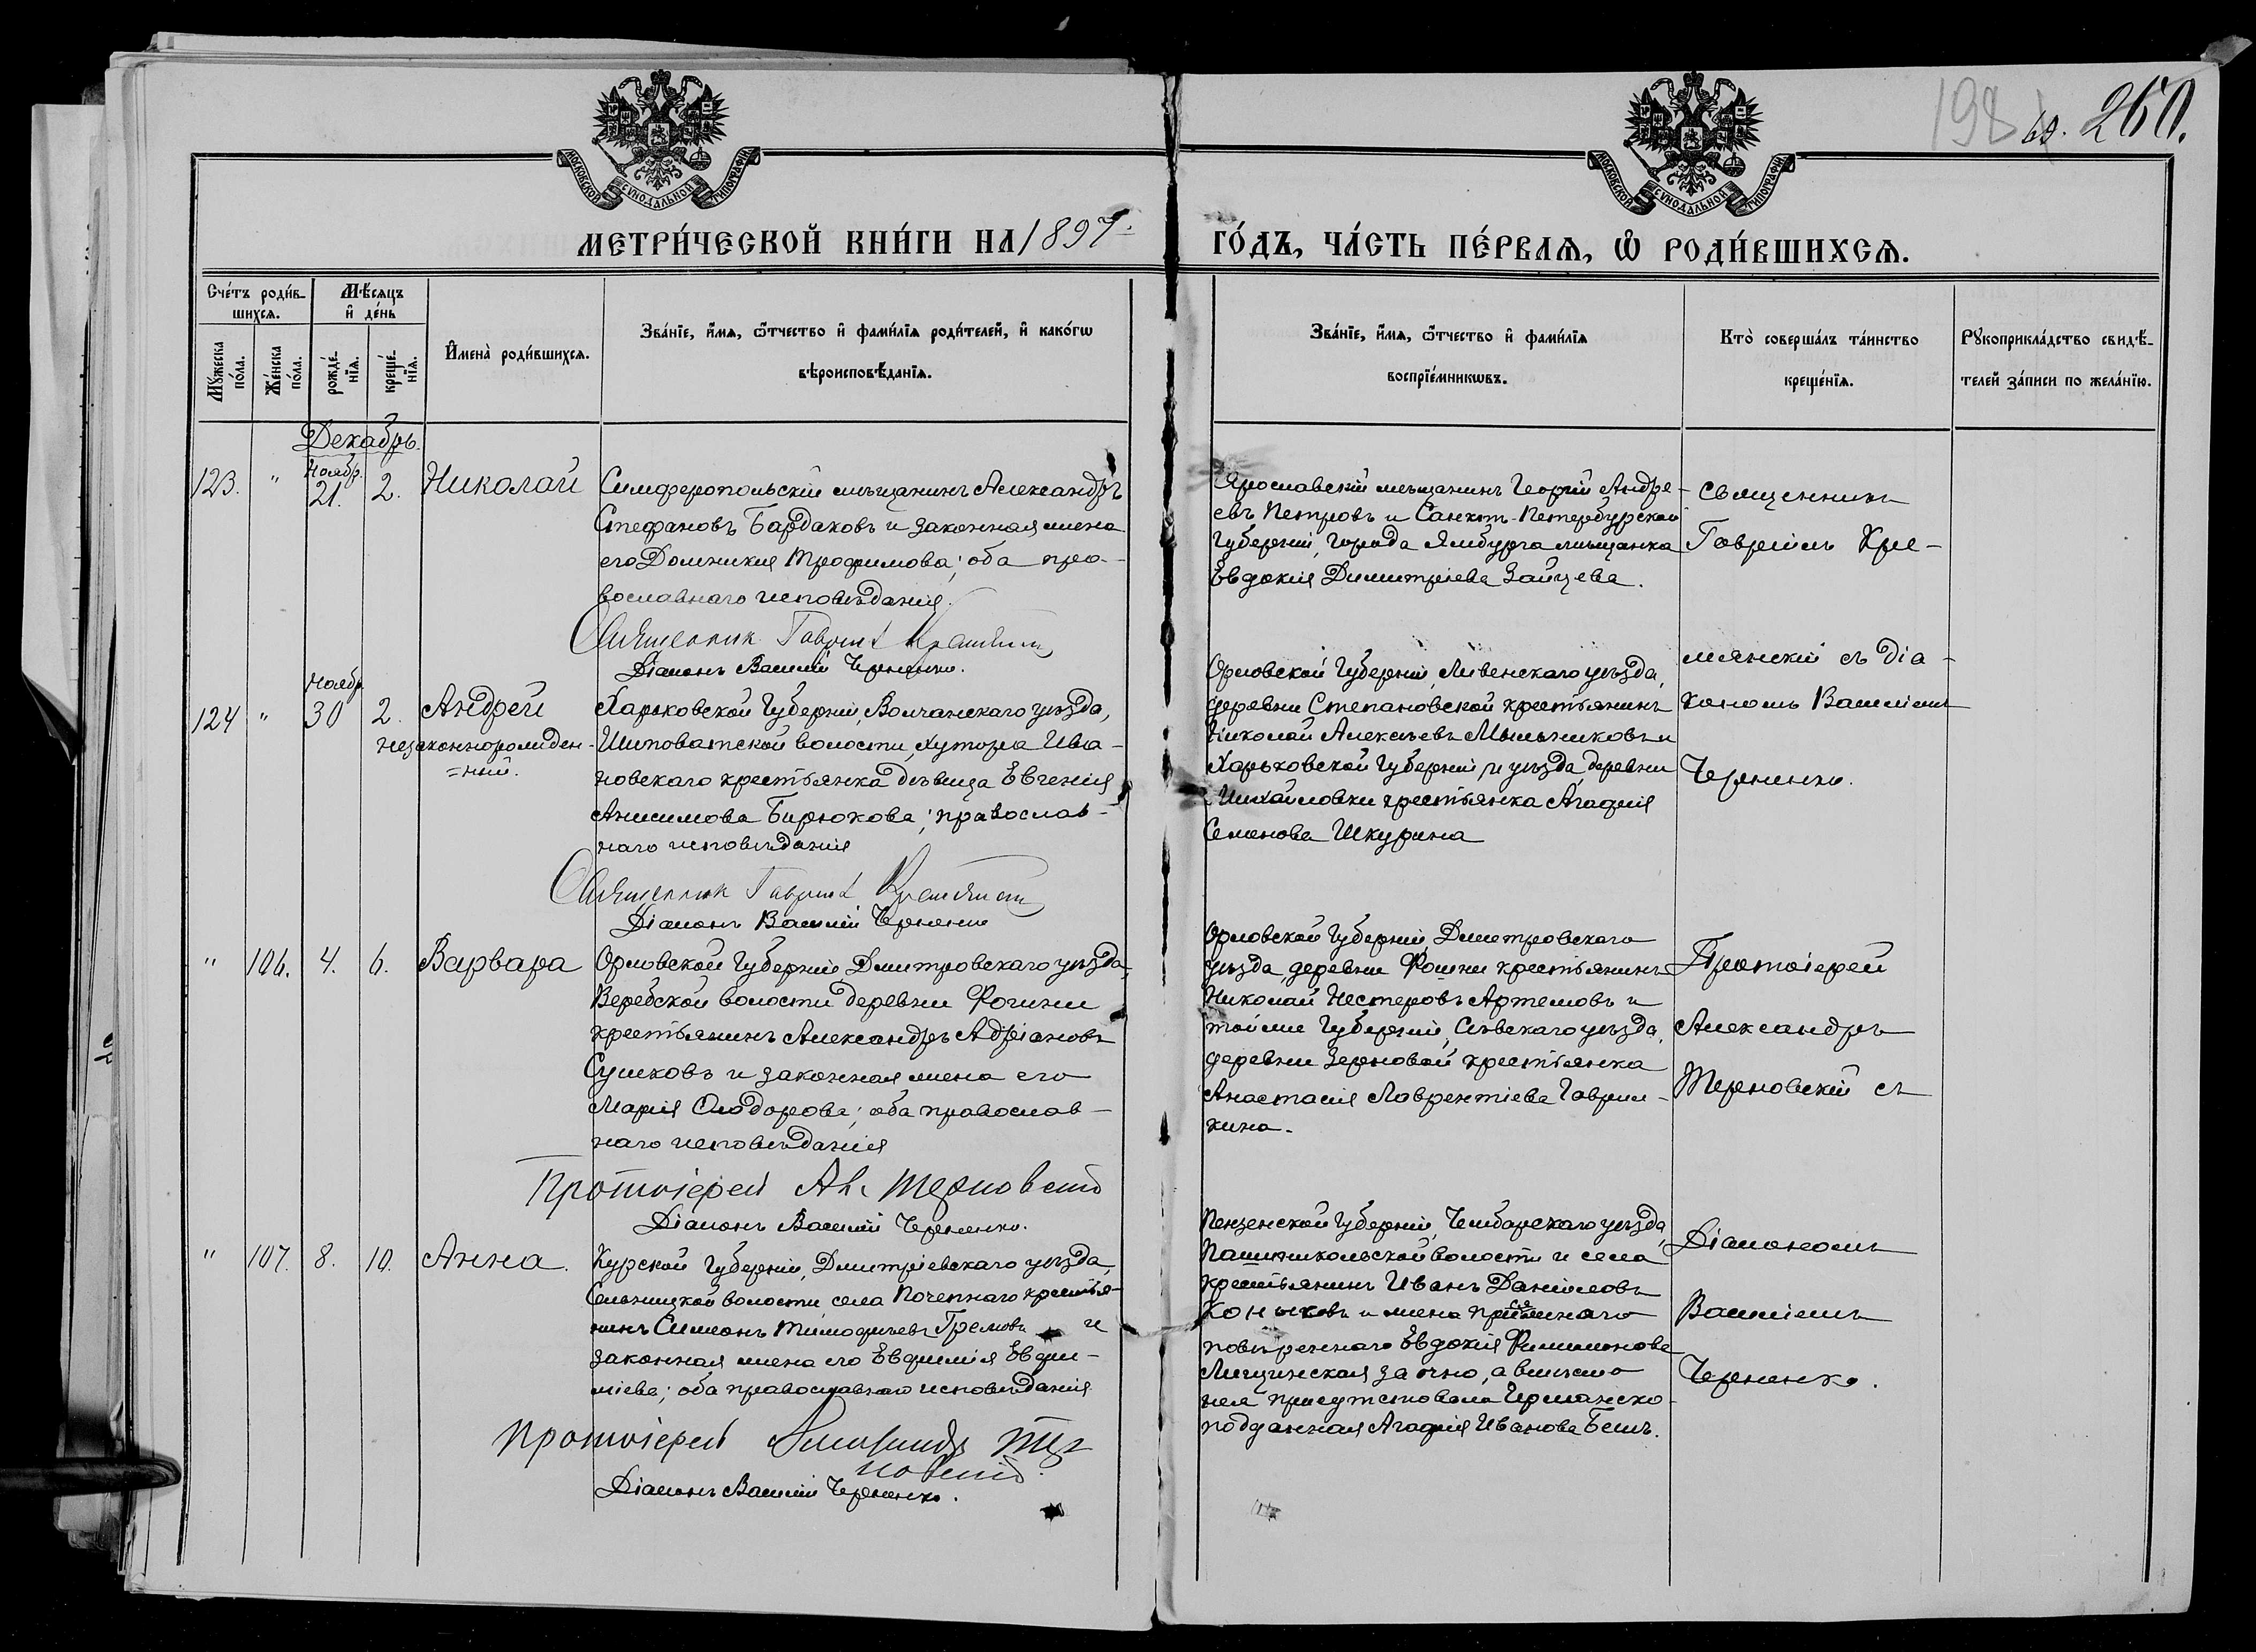 198 об. 260.
МОСКОВСКОЙ СѴНОДАЛЬНОЙ ТИПОГРАФІИ
МОСКОВСКОЙ СѴНОДАЛЬНОЙ ТИПОГРАФІИ
МЕТРИ́ЧЕСКОЙ КНИ́ГИ НА 1897.
ГО́ДЪ, ЧА́СТЬ ПЕ́РВАѦ, Ѡ РОДИ́ВШИХСѦ.
Сче́тъ роди́в-
шихсѧ.
Мꙋ́жеска
по́ла.
Же́нска
по́ла.
Мѣ́сѧцъ
и҆ де́нь
рожде́-
нїѧ.
креще́-
нїѧ.
И҆мена̀ роди́вшихсѧ.
Зва́нїе, и҆́мѧ, ѻ҆́тчество и҆ фами́лїѧ роди́телей, и҆ како́гѡ
вѣроисповѣ́данїѧ.
Зва́нїе, и҆́мѧ, ѻ҆́тчество и҆ фами́лїѧ
воспрїе́мникѡвъ.
Кто̀ соверша́лъ та́инство
креще́нїѧ.
Рꙋкоприкла́дство свидѣ́-
телей за́писи по жела́нїю.
Декабрь.
123. " Ноябр. 21. 2. Николай
Симферопольскій мѣщанинъ Александръ
Стефановъ Бардаковъ и законная жена
его Домникія Трофимова; оба пра-
вославнаго исповѣданія.
Священник Гавриил
Діаконъ Василій Черненко.
Ярославскій мѣщанинъ Георгій Андре-
евъ Петровъ и Санктъ-Петербурской
Губерніи, города Ямбурга мѣщанка
Евдокія Димитріева Зайцева.
Священникъ
Гавріилъ Кре-
мянскій съ діа-
кономъ Василіемъ
Черненко.
124 " Ноябр 30 2. Андрей
незаконнорожден-
=ный.
Харьковской Губерніи, Волчанскаго уѣзда,
Шиповатской волости, хутора Ива-
новскаго крестьянка дѣвица Евгенія
Анисимова Бирюкова; православ-
наго исповѣданія
Священник Гавриил
Діаконъ Василій Черненко
Орловской Губерніи, Ливенскаго уѣзда,
деревни Степановской крестьянинъ
Николай Алексѣевъ Мыльниковъ и
Харьковской Губерніи, и уѣзда, деревни
Михайловки крестьянка Агафія
Семенова Шкурина
" 106. 4. 6. Варвара
Орловской Губерніи Дмитровскаго уѣзда,
Веребской волости деревни
крестьянинъ Александръ Адріановъ
Сушковъ и законная жена его
Марія; оба православ-
наго исповѣданія
Протоіерей Ал. Терновскій
Діаконъ Василій Черненко.
Орловской Губерніи, Дмитровскаго
уѣзда, деревни крестьянинъ
Николай Нестеровъ Артемовъ и
тойже Губерніи, Сѣвскаго уѣзда,
деревни Зерновой крестьянка
Анастасія Лаврентіева Гаврил-
кина.
Протоіерей
Александръ
Терновскій съ
Діакономъ
Василіемъ
Черненко.
" 107. 8. 10. Анна.
Курской Губерніи, Дмитріевскаго уѣзда,
волости села Почепнаго крестья-
нинъ Симеонъ Тимофѣевъ Громовъ и
законная жена его Евфимія Евфи-
міева; оба православнаго исповѣданія
Протоіерей Александръ Тер
новскій.
Діаконъ Василій Черненко.
Пензенской Губерніи, Чембарскаго уѣзда,
волости и села
крестьянинъ Иванъ Даниловъ
Коньковъ и жена присяжнаго
повѣреннаго Евдокія Филимонова
Лищинская заочно, а вмѣсто
нея присутствовала Германско
подданная Агафія Иванова Бемъ.